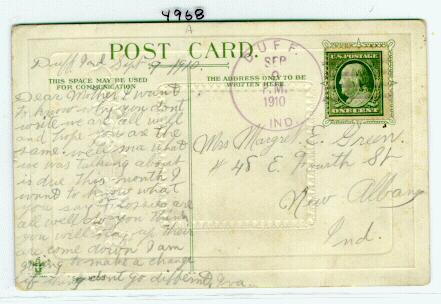 4968
A
Duff Ind Sept 9 1910
POST CARD.
THIS SPACE MAY BE USED
FOR COMMUNICATION
THE ADDRESS ONLY TO BE
WRITTEN HERE
DUFF
SEP
9
P.M.
1910
IND.
U.S. POSTAGE
ONE CENT
Dear Mother I want
to know why you dont
write we are all well
and hope you are the
same. well ma what
we was talking about
is due this month I
want to know what
you say
all well do you think
you will
are come down I am
going to make a change
if things dont go different Iva
Mrs Margret E. Green.
# 48 E. Fourth St
New Albany
Ind.